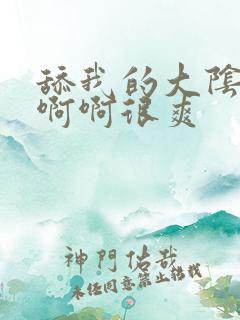 舔我的大陰
啊啊很爽
神門佑哉
未經同意禁止轉載